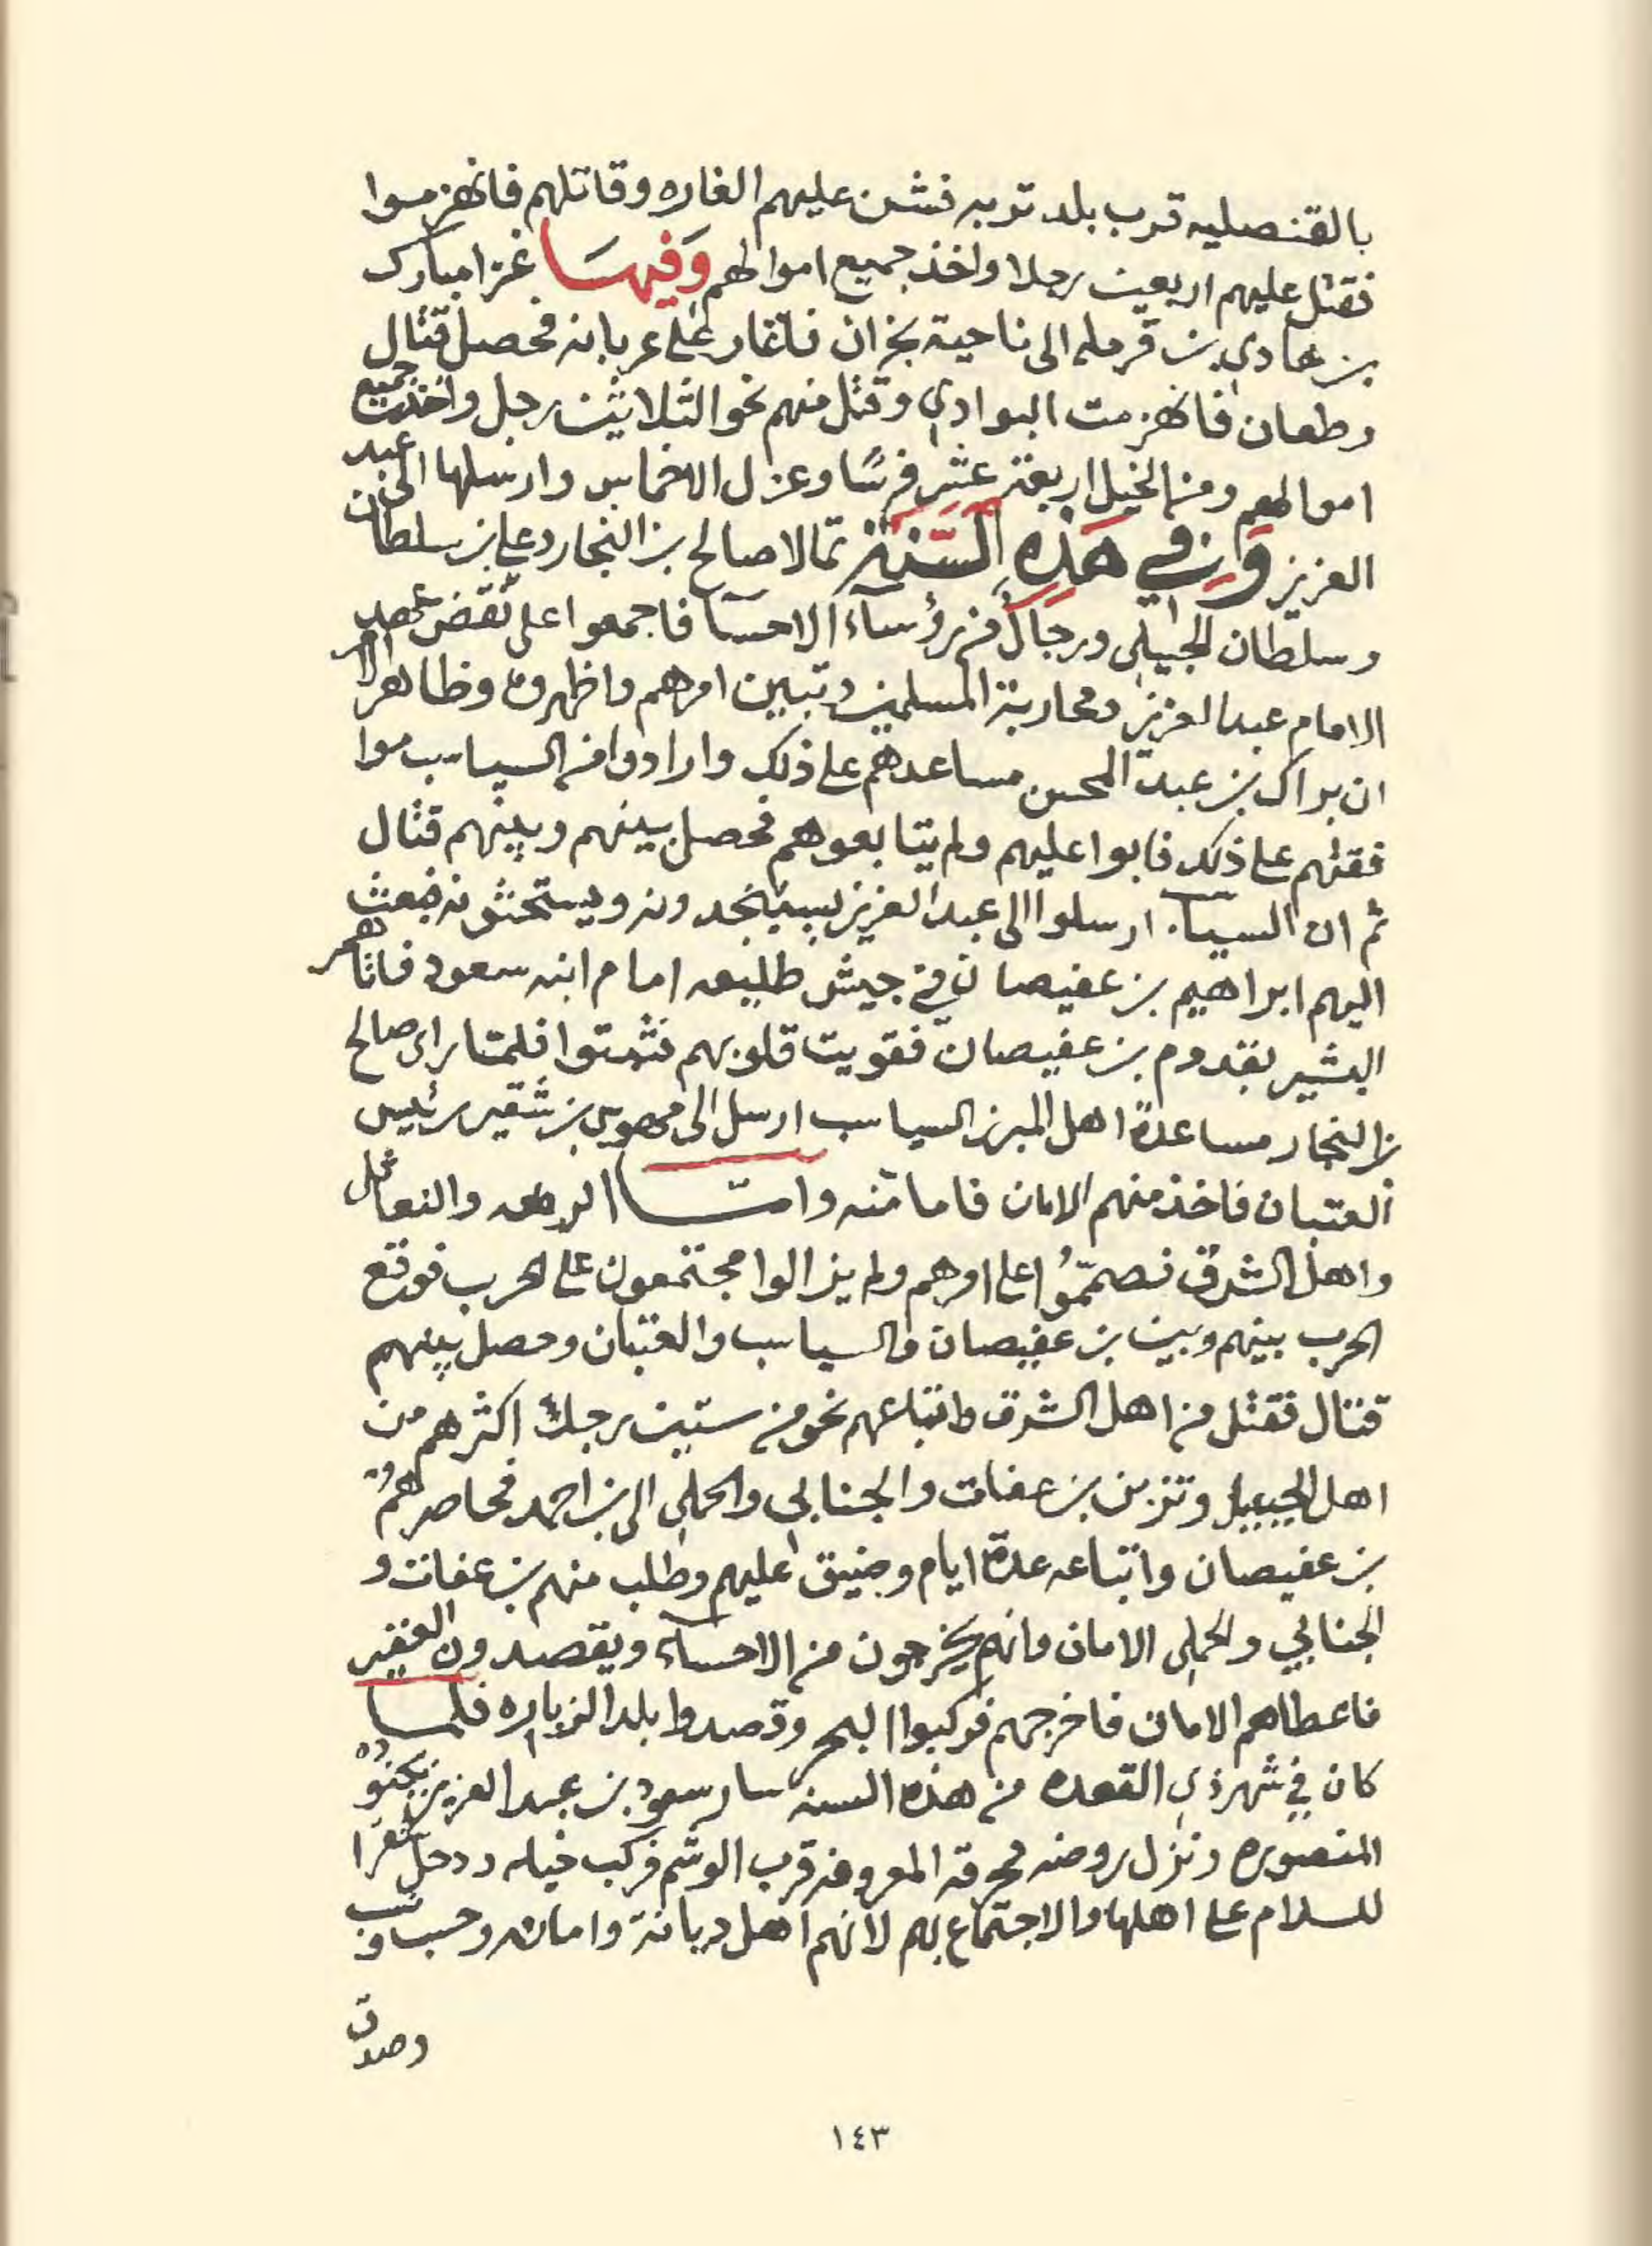 بالقنصليه قرب بلد تربه فشن عليهم الغاره وقاتلهم فانهزموا
فقتل عليهم اربعين رجلا واخذ جميع اموالهم وَفيهَا غزا مبارك
بن هادي بن قرمله الى ناحية نجران فاغار على عربانه فحصل قتال
وطعان فانهزمت البوادي وقتل منهم نحو الثلاثين رجل واخذت جميع
اموالهم ومن الخيل اربعة عشر فرسًا وعزل الاخماس وارسلها الى عبد
العزيز وَفي هَذِه السَّنَة تمالا صالح بن النجار وعلي بن سلطان
وسلطان الجبيلي ورجال من رؤساء الاحسا فاجمعوا على نقض عهد
الامام عبد العزيز ومحاربة المسلمين وتبين امرهم واظهروه وظاهر الامر
ان براك بن عبد المحسن مساعدهم على ذلك وارادوا من السياسب موا
فقتهم على ذلك فابوا عليهم ولم يتابعوهم فحصل بينهم وبينهم قتال
ثم ان السياسب ارسلوا الى عبد العزيز يستنجدونه ويستحثونه فبعث
اليهم ابراهيم بن عفيصان في جيش طليعه امام ابنه سعود فاتاهم
البشير بقدوم بن عفيصان فقويت قلوبهم فثبتوا فلما راى صالح
بن النجار مساعدة اهل المبرز السياسب ارسل الى مهوس بن شقير رئيس
العتبان فاخذ منهم الامان فامانّه وامّا الرفعه والنعاثل
واهل الشرق فصمّمُوا على امرهم ولم يزالوا مجتمعون على الحرب فوقع
الحرب بينهم وبين بن عفيصان والسياسب والعتبان وحصل بينهم
قتال فقتل من اهل الشرق واتباعهم نحو من ستين رجلا اكثرهم من
اهل الجبيل وتزبن بن عفات والجنابي والحملي الى بن احمد فحاصرهم
بن عفيصان واتباعه عدة ايام وضيق عليهم وطلب منهم بن عفات و
الجنابي والحملي الامان وانهم يخرجون من الاحساء ويقصدون العقير
فاعطاهم الامان فاخرجهم فركبوا البحر وقصدوا بلد الزباره فلما
كان في شهر ذي القعده من هذه السنه سار سعود بن عبد العزيز بجنوده
المنصوره ونزل روضه محرقه المعروفه قرب الوشم فركب خيله ودخل شقرا
للسلام على اهلها والاجتماع بهم لانهم اهل ديانة وامانه وحسب ونسب
وصدق
١٤٣